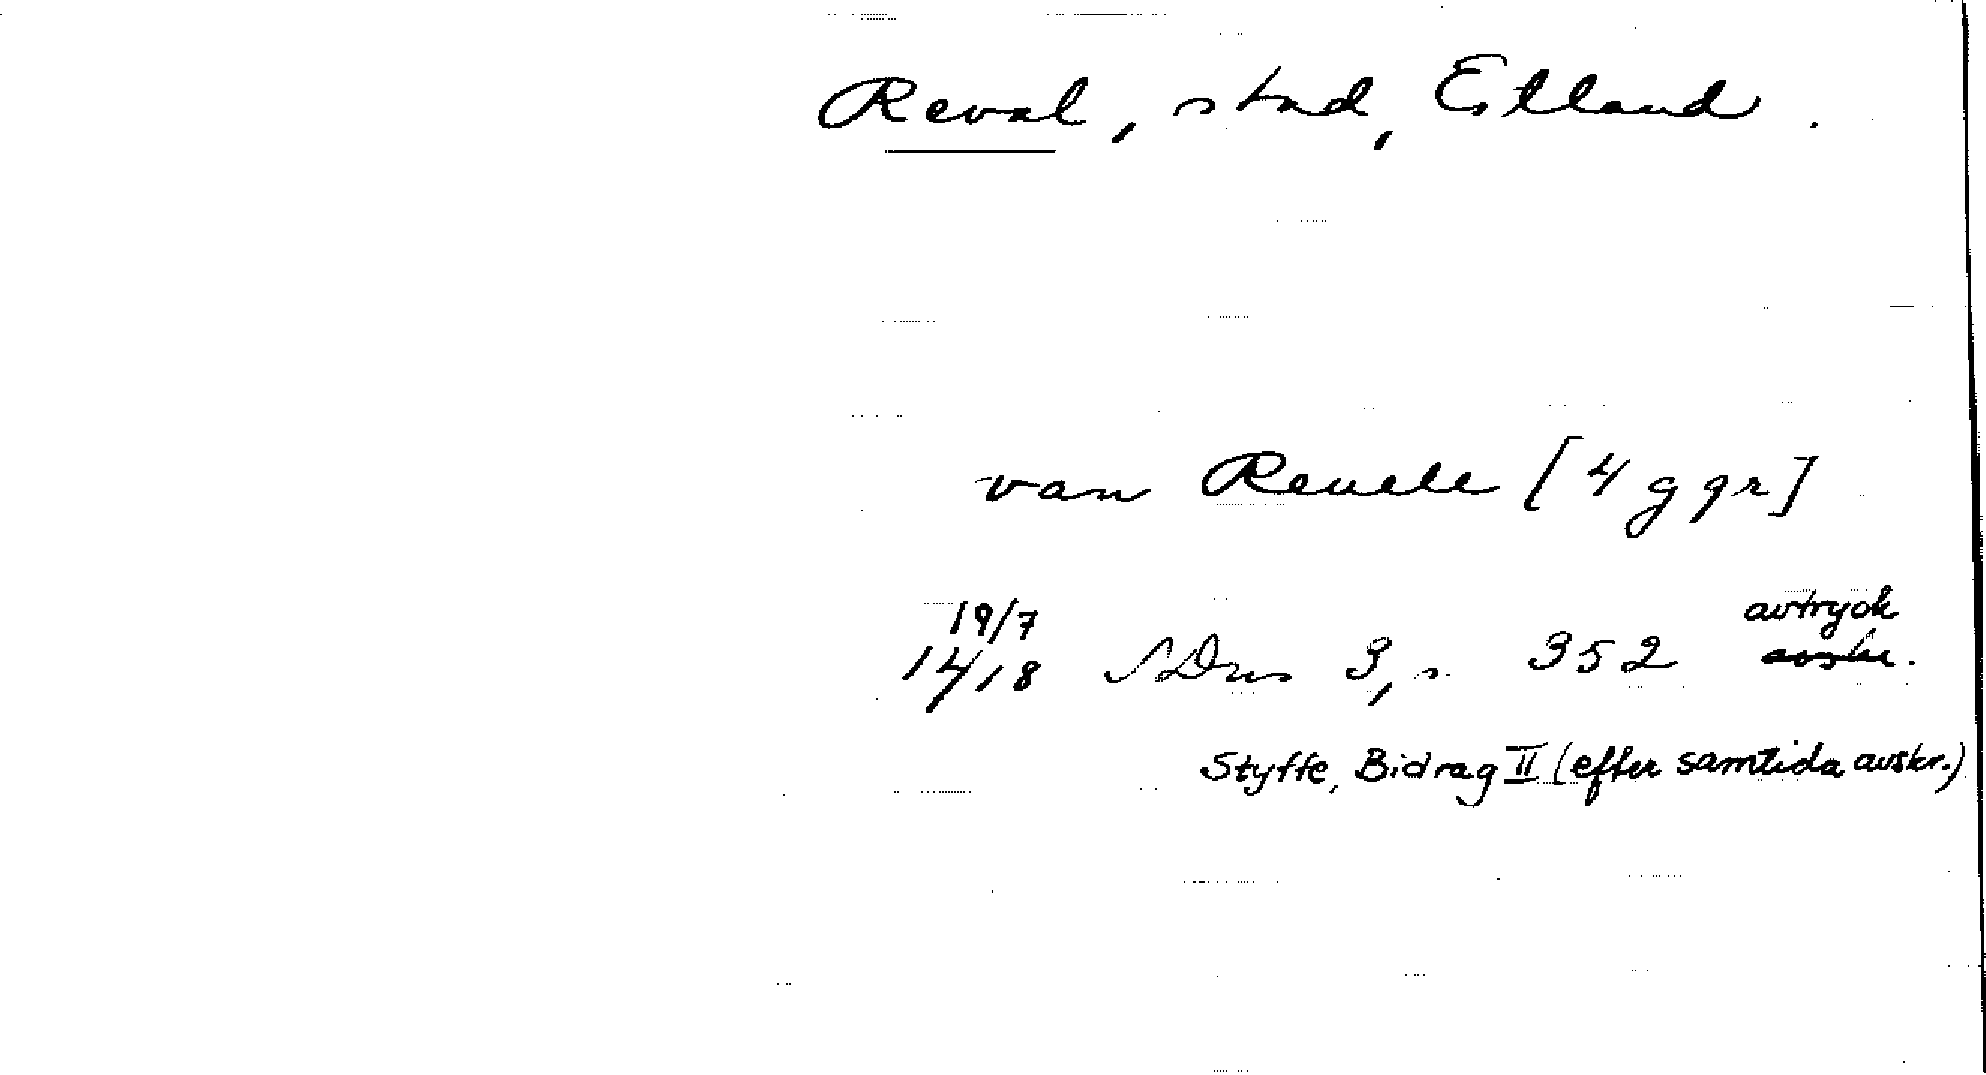 Reval, stad, Estland.
van Reuele [4 ggr]
19/7 avtryck
1418 SDns 3, s. 352 avskr.
Styffe, Bidrag II (efter samtida avskr.)